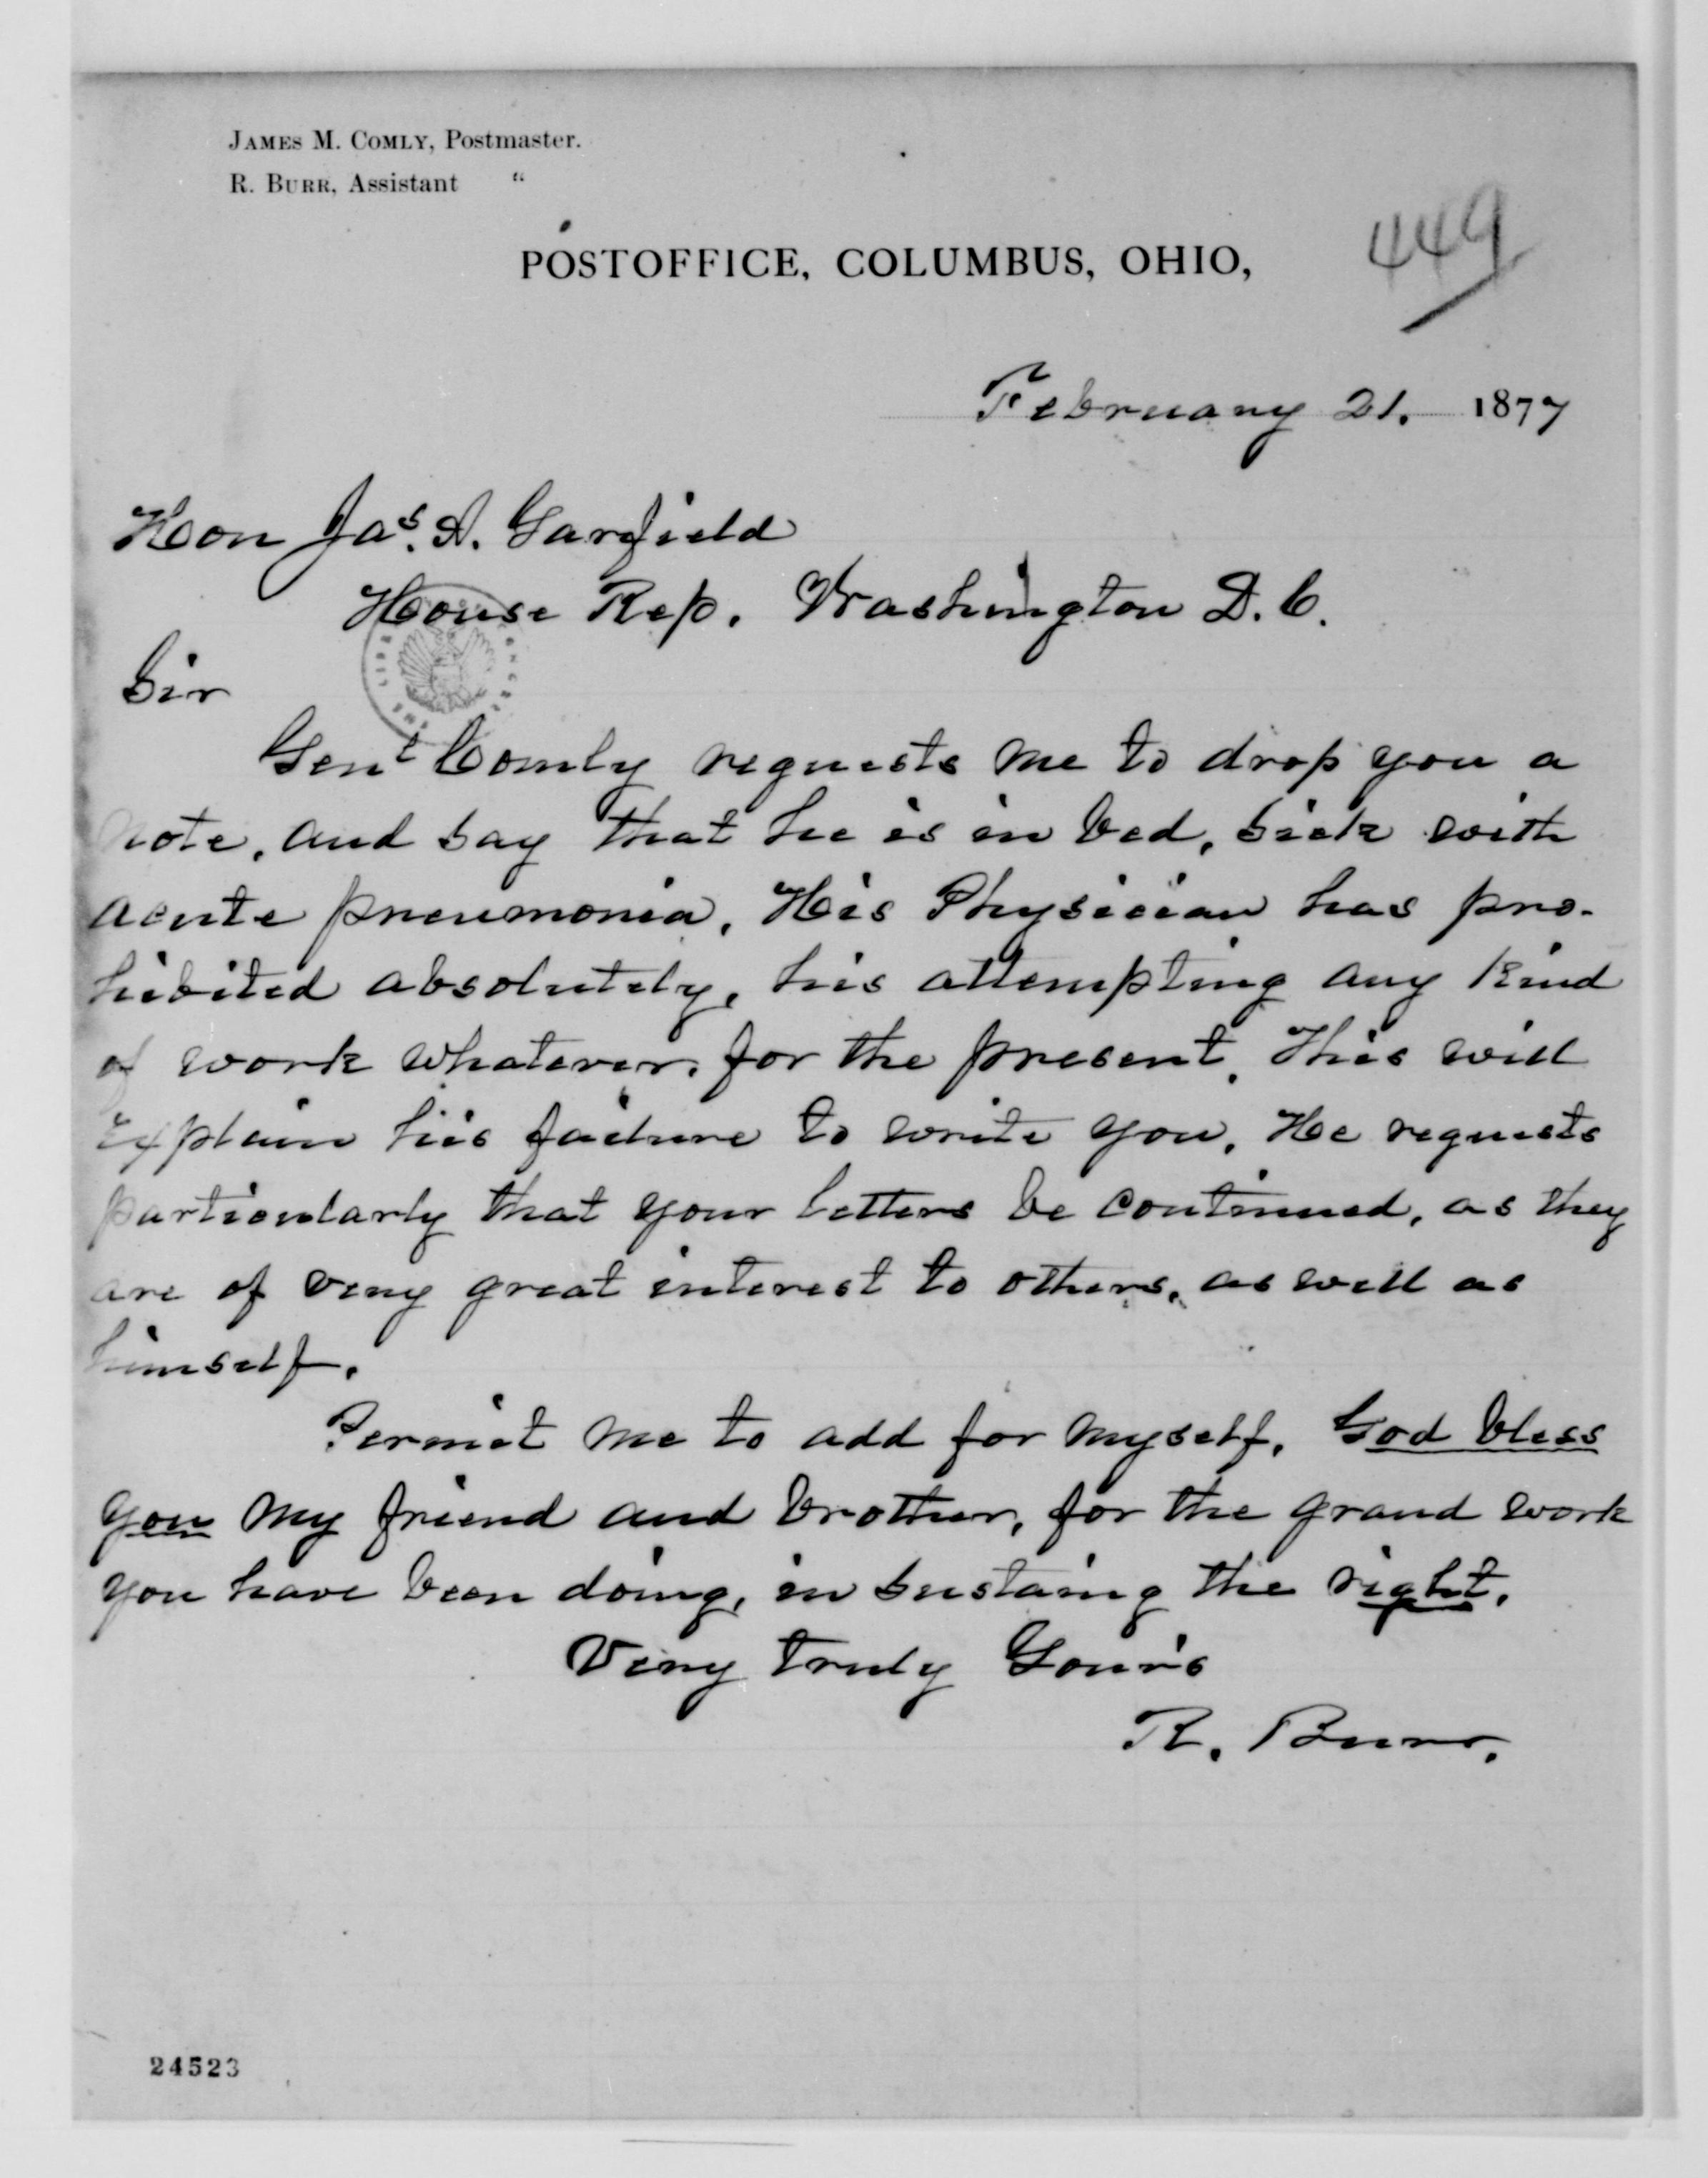 JAMES M. COMLY, Postmaster.
R. BURR, Assistant "
449
POSTOFFICE, COLUMBUS, OHIO,
February 21. 1877
Hon Jas. A. Garfield
House Rep. Washington D.C.
Sir
Genl Comly requests me to drop you a
note, and say that he is in bed, sick with
acute pneumonia. His Physician has pro-
hibited absolutely, his attempting any kind
of work whatever, for the present. This will
explain his failure to write you. He requests
particularly that your letters be continued, as they
are of very great interest to others, as well as
himself.
Permit me to add for myself, God bless
you my friend and brother, for the grand work
you have been doing, in sustaing the right.
Very truly Yours
R. Burr.
24523